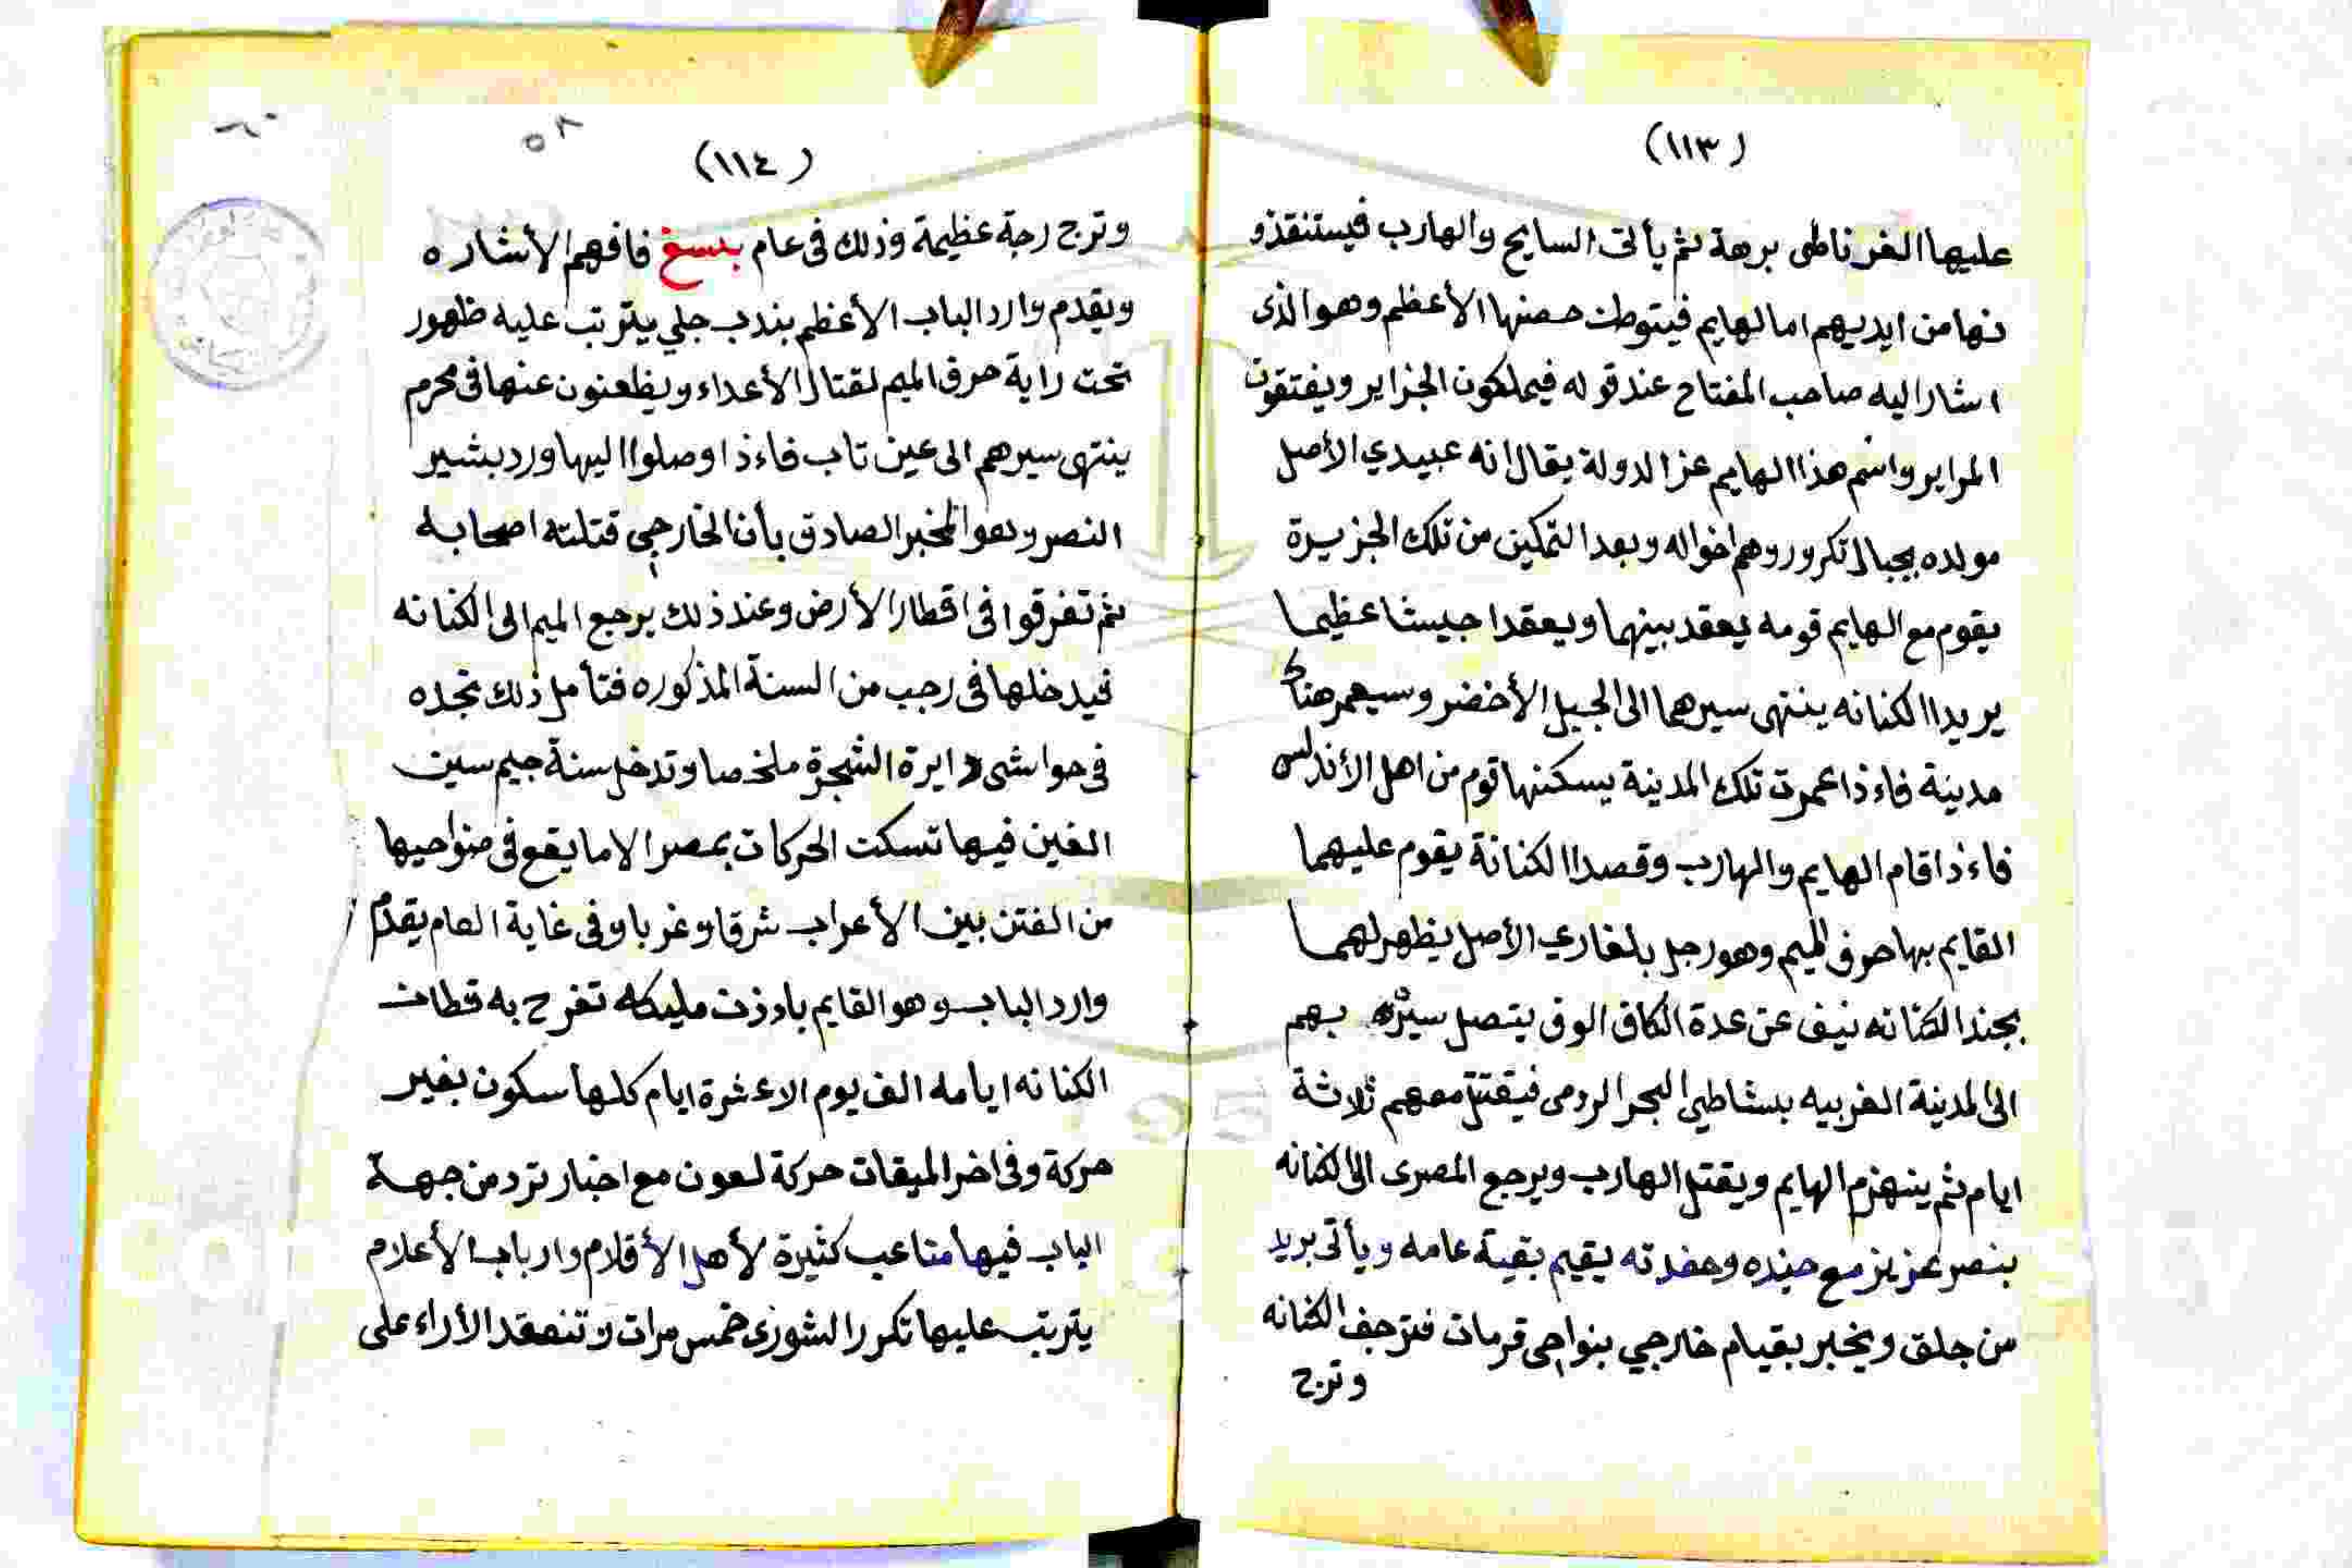 (١١٣)
عليها الغرناطى برهة ثم يأتى السايح والهارب فيستنقذو
نها من ايديهم اما الهايم فيتوطن حصنها الأعظم وهو الذى
اشار اليه صاحب المفتاح عند قوله فيملكون الجزاير ويفتقون
المراير واسم هذا الهايم عز الدولة يقال انه عبيدي الأصل
مولده بجبال تكرور وهم اخواله وبعد التمكين من تلك الجزيرة
يقوم مع الهايم قومه يعقد بينهما ويعقدا جيشا عظيما
يريدا الكنانه ينتهى سيرهما الى الجبل الأخضر وسيعمر هناك
مدينة فاءذا عمرت تلك المدينة يسكنها قوم من اهل الأندلس
فاءذا قام الهايم والهارب وقصدا الكنانة يقوم عليهما
القايم بها حرف الميم وهو رجل بلغاري الأصل يظهر لهما
بجند الكنانه نيف عن عدة الكاف الوف يتصل سيره بهم
الى المدينة الغربيه بشاطي البحر الرومى فيقتتل معهم ثلاثة
ايام ثم ينهزم الهايم ويقتل الهارب ويرجع المصرى الى الكنانه
بنصر عزيز مع جنده وحفدته يقيم بقية عامه ويأتى بريد
من جلق ويخبر بقيام خارجي بنواحى قرمان فترجف الكنانه
وترج
٦٠
٥٨
(١١٤)
وترج رجة عظيمة وذلك فى عام بنسغ فافهم الأشاره
ويقدم وارد الباب الأعظم بندب جلي يترتب عليه ظهور
تحت راية حرف الميم لقتال الأعداء ويظعنون عنها فى محرم
ينتهى سيرهم الى عين تاب فاءذا وصلوا اليها ورد بشير
النصر وهو المخبر الصادق بأن الخارجي قتلته اصحابه
ثم تفرقوا فى اقطار الأرض وعند ذلك يرجع الميم الى الكنانه
فيدخلها فى رجب من السنة المذكوره فتأمل ذلك تجده
فى حواشى دايرة الشجرة ملخصا وتدخل سنة جيم سين
الغين فيها تسكت الحركات بمصر الا ما يقع فى ضواحيها
من الفتن بين الأعراب شرقا وغربا وفى غاية العام يقدم
وارد الباب وهو القايم باءذن مليكه تفرح به قطان
الكنانه ايامه الف يوم الا عشرة ايام كلها سكون بغير
حركة وفى اخر الميقات حركة لعون مع اخبار ترد من جهة
الباب فيها متاعب كثيرة لأهل الأقلام وارباب الأعلام
يترتب عليها تكرر الشورى خمس مرات وتنعقد الأراء على